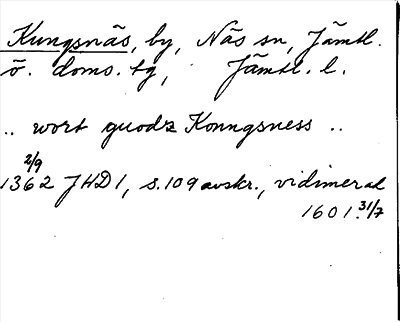 Kungsnäs, by, Näs sn, Jämtl.
ö. doms. tg, Jämtl. l.
.. wort guodz Konngsness ..
2/9
1362 JHD1, s. 109 avskr., vidimerad
1601 31/7